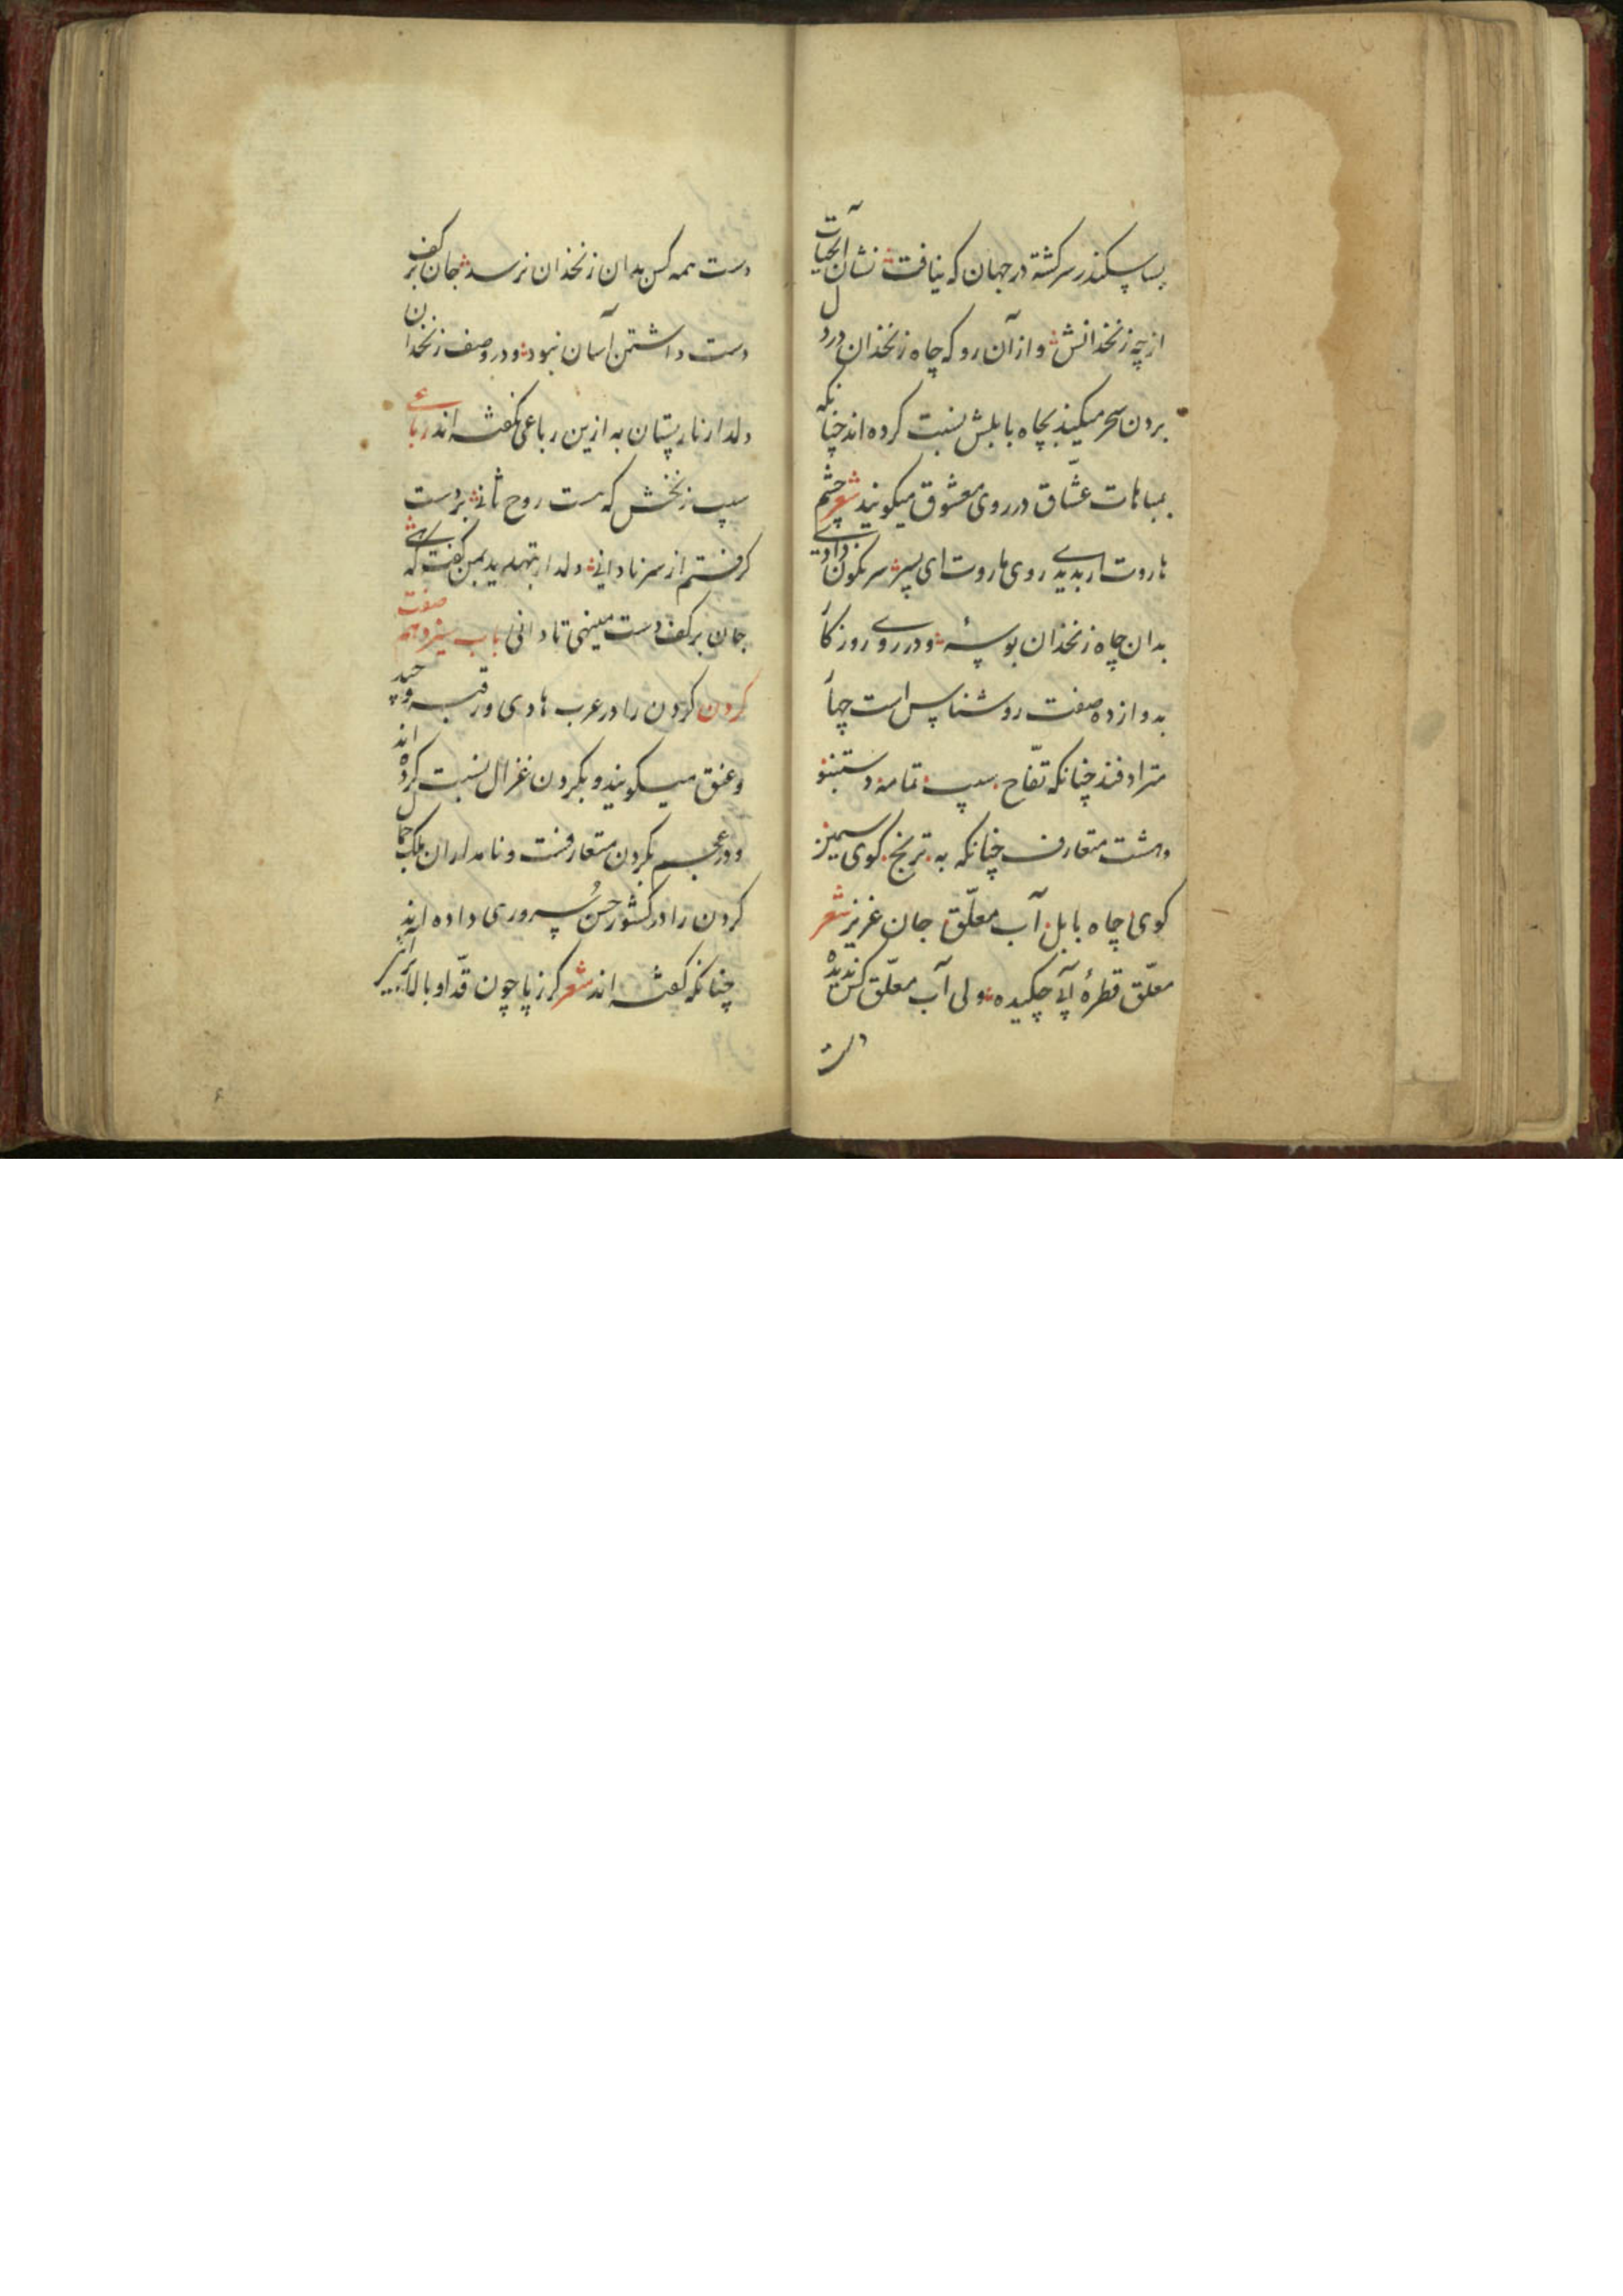 بسا سکندر سرکشته در جهان که نیافت نشان آب حیات
از چه زنخدانش و از آن رو که چاه زنخدان در دل
بردن سحر میکند بچاه بابلش نسبت کرده اند چنانکه
بمباهات عشّاق در روی معشوق میکویند شعر چشم
هاروت ار بدیدی روی هاروت ای پسر سرنکون دادی
بدان چاه زنخدان بوسهٔ و در روی روزکار
بدوازده صفت روشناس است چهار
مترادفند چنانکه تفّاح سیب شمامه دستنبو
و هشت متعارف چنانکه به ترنج کوی سیمین
کوی چاه بابل آب معلّق جان عزیز شعر
معلّق قطرهٔ آبی چکیده ولی آب معلّق کس ندیده
دست
دست همه کس بدان زنخدان نرسد جان بر کف
دست داشتن آسان نبود و در وصف زنخدان
دلدار نار پستان به ازین رباعی نکفته اند رباعی
سیب زنخش که هست روح ثانی بر دست
کرفتم از سر نادانی دلدار بتهدید بمن کفت که هی
جان بر کف دست مینهی تا دانی باب سیزدهم صفت
کردن کردن را در عرب هادی و رقبه و جید
و عنق میکویند و بکردن غزال نسبت کرده اند
و در عجم بکردن متعارفست و نامداران ملک جمال
کردن را در کشور حسن سروری داده اند
چنانکه کفته اند شعر کرز پا چون قدّ او بالا